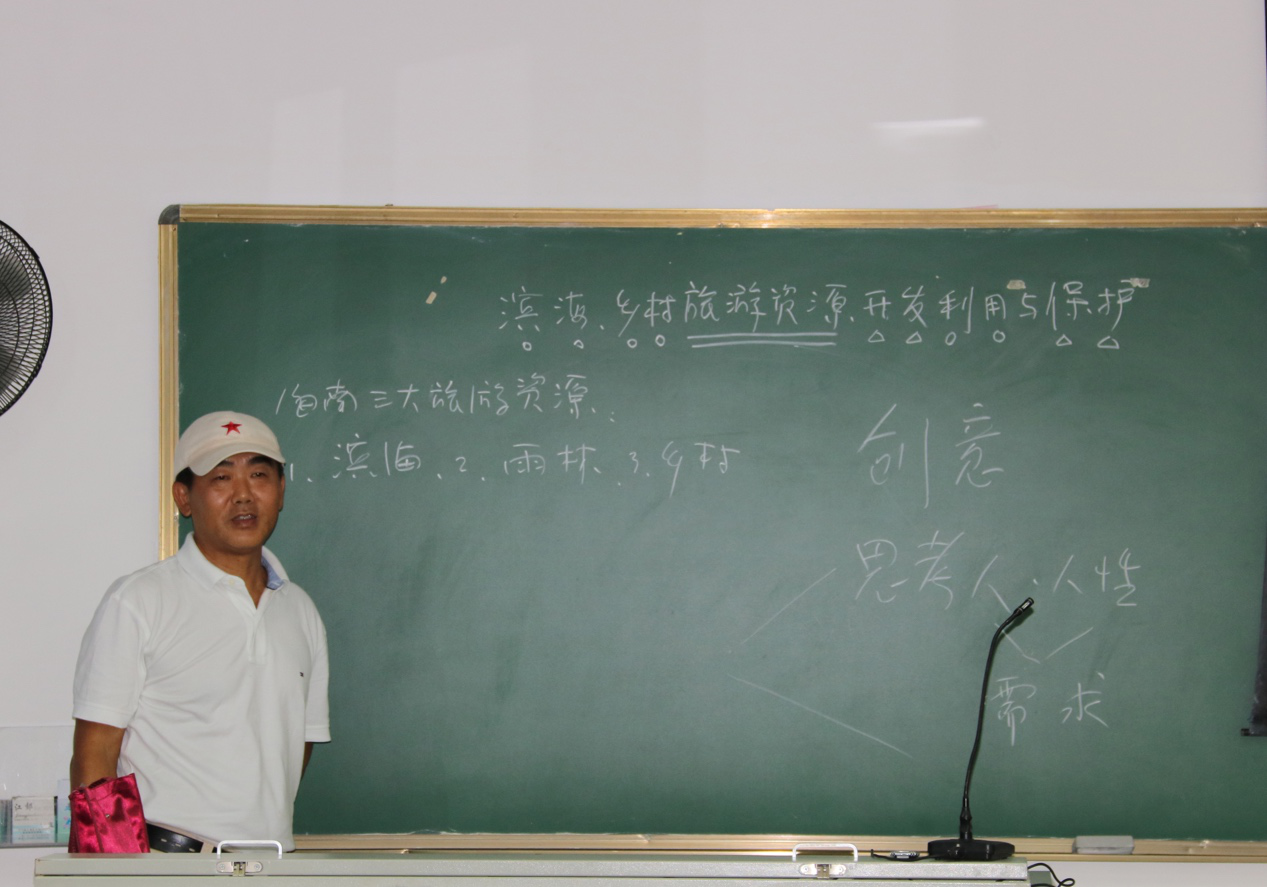 滨海、乡村旅游资源开发利用与保护
海南三大旅游资源:
1、滨海、2、雨林、3、乡村
创意
思考人、人性
需求